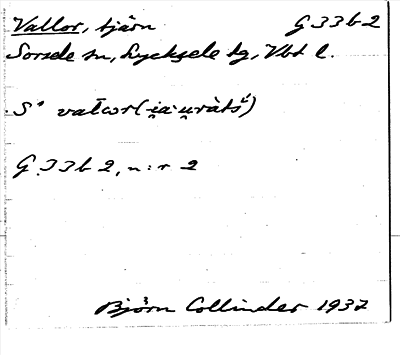 Vallor, tjärn G 33 b 2
Sorsele sn, Lycksele tg, Vbt l.
S° 
G 33 b 2, n:r 2
Björn Collinder 1937